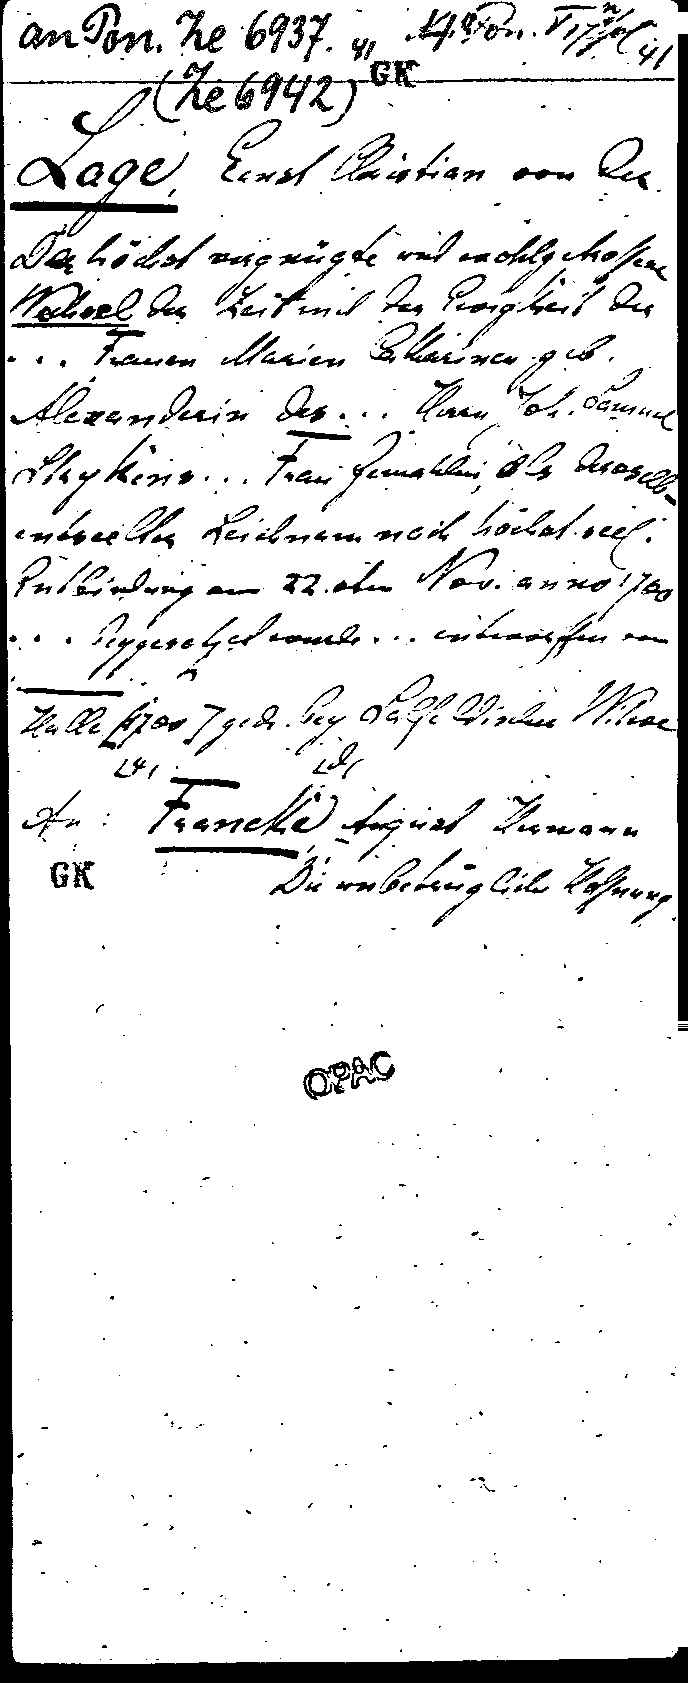 an Pon. Ze 6937. 41
GK
(Ze 6942)
Lage, Ernst Christian von der
Der höchst vergnügte und wohlgetroffene
Wechsel der Zeit mit der Ewigkeit der
... Frauen Marien Catharinen geb.
Alexanderin des... Herrn Joh. Samuel
Strykens... Frau Gemahlin, Als deroselb-
entseelter Leichnam nach höchst seel.
Entbindung am 22.sten Nov. anno 1700
... beygesetzet wurde... entworffen von
Halle [1700] gedr. bey Salfeldischer Witwe
An: Francke, August Hermann
GK Die unbetrügliche Hoffnung
OPAC